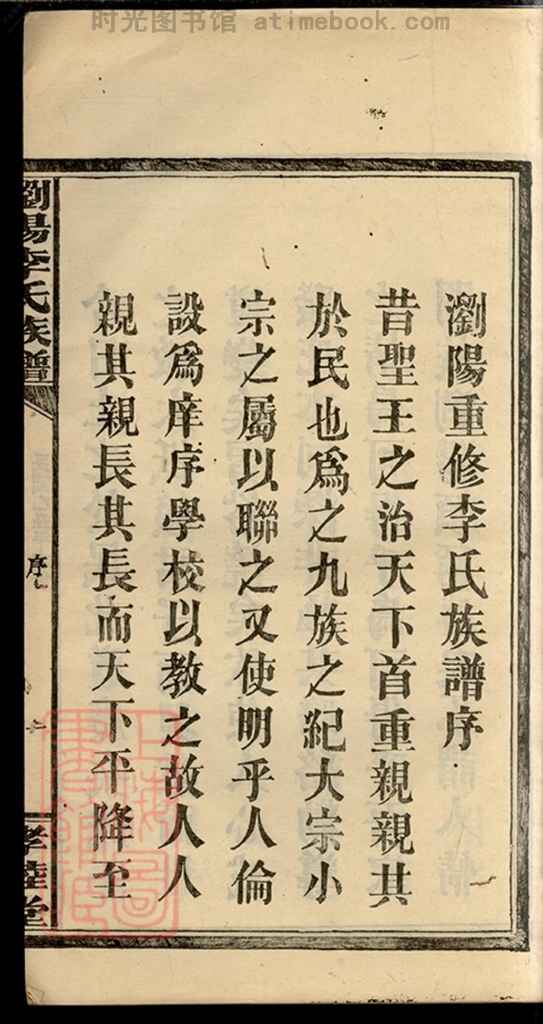 时光图书馆 atimebook.com
瀏陽重修李氏族譜序
昔聖王之治天下首重親親其
於民也爲之九族之紀大宗小
宗之屬以聯之又使明乎人倫
設爲庠序學校以教之故人人
親其親長其長而天下平降至
瀏陽李氏族譜
序
孝睦堂